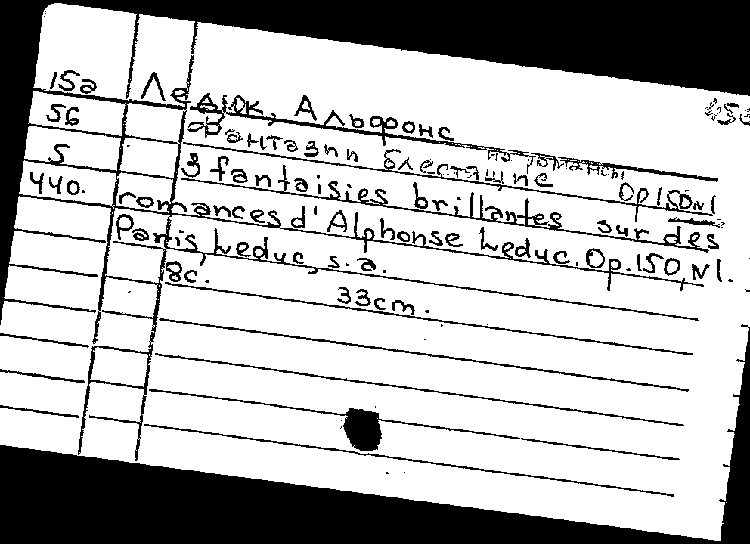 15а Ледюк, Альфонс
56 Фантазии блестящие на романсы Op150N1
5 3 fantaisies brillantes sur des
440. romances d'Alphonse Leduc. Op.150, N1.
Paris, Leduc, s.a.
8с. 33cm.